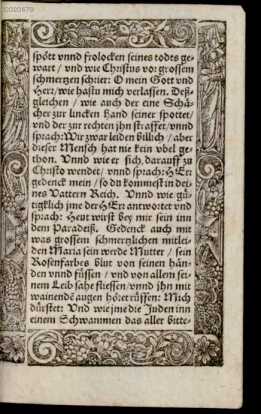 spött vnnd frolocken seines todts ge-
wart / vnd wie Christus vor grossem
schmertzen schrier: O mein Gott vnd
Herr / wie hastu mich verlassen. Deß-
gleichen / wie auch der eine Schä-
cher zur lincken hand seiner spottet /
vnd der zur rechten ihn straffet / vnnd
sprach: Wir zwar leiden billich / aber
dieser Mensch hat nie kein vbel ge-
thon. Vnnd wie er sich darauff zu
Christo wendet / vnnd sprach: HErr
gedenck mein / so du kommest in dei-
nes Vattern Reich. Vnnd wie gü-
tigklich jme der HErr antwortet vnd
sprach: Heut wirst bey mir sein inn
dem Paradeiß. Gedenck auch mit
was grossem schmertzlichen mitlei-
den Maria sein werde Mutter / sein
Rosenfarbes blut von seinen hän-
den vnnd füssen / vnd von allem sei-
nem Leib sahe fliessen / vnnd ihn mit
wainende augen höret rüffen: Mich
dürstet: Vnd wie jme die Juden inn
einem Schwammen das aller bitte-